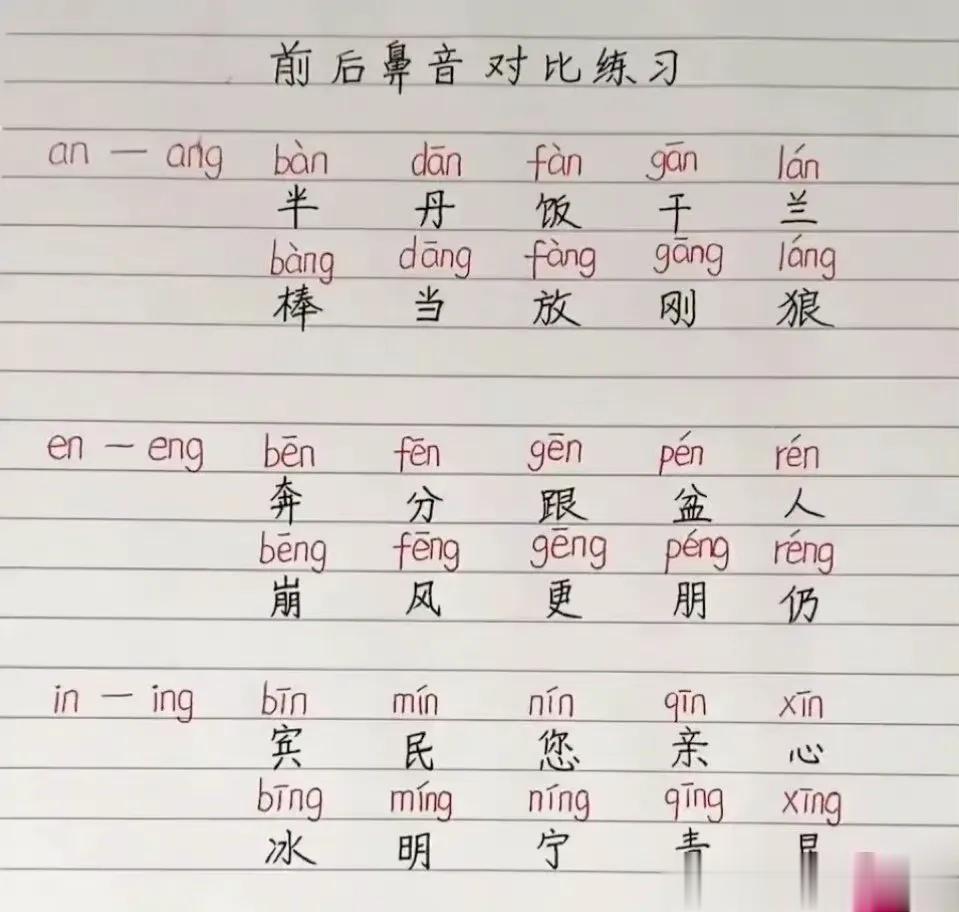 前后鼻音对比练习
an — ang bàn dān fàn gān lán
半 丹 饭 干 兰
bàng dāng fàng gāng láng
棒 当 放 刚 狼
en — eng bēn fēn gēn pén rén
奔 分 跟 盆 人
bēng fēng gēng péng réng
崩 风 更 朋 仍
in — ing bīn mín nín qīn xīn
宾 民 您 亲 心
bīng míng níng qīng xīng
冰 明 宁